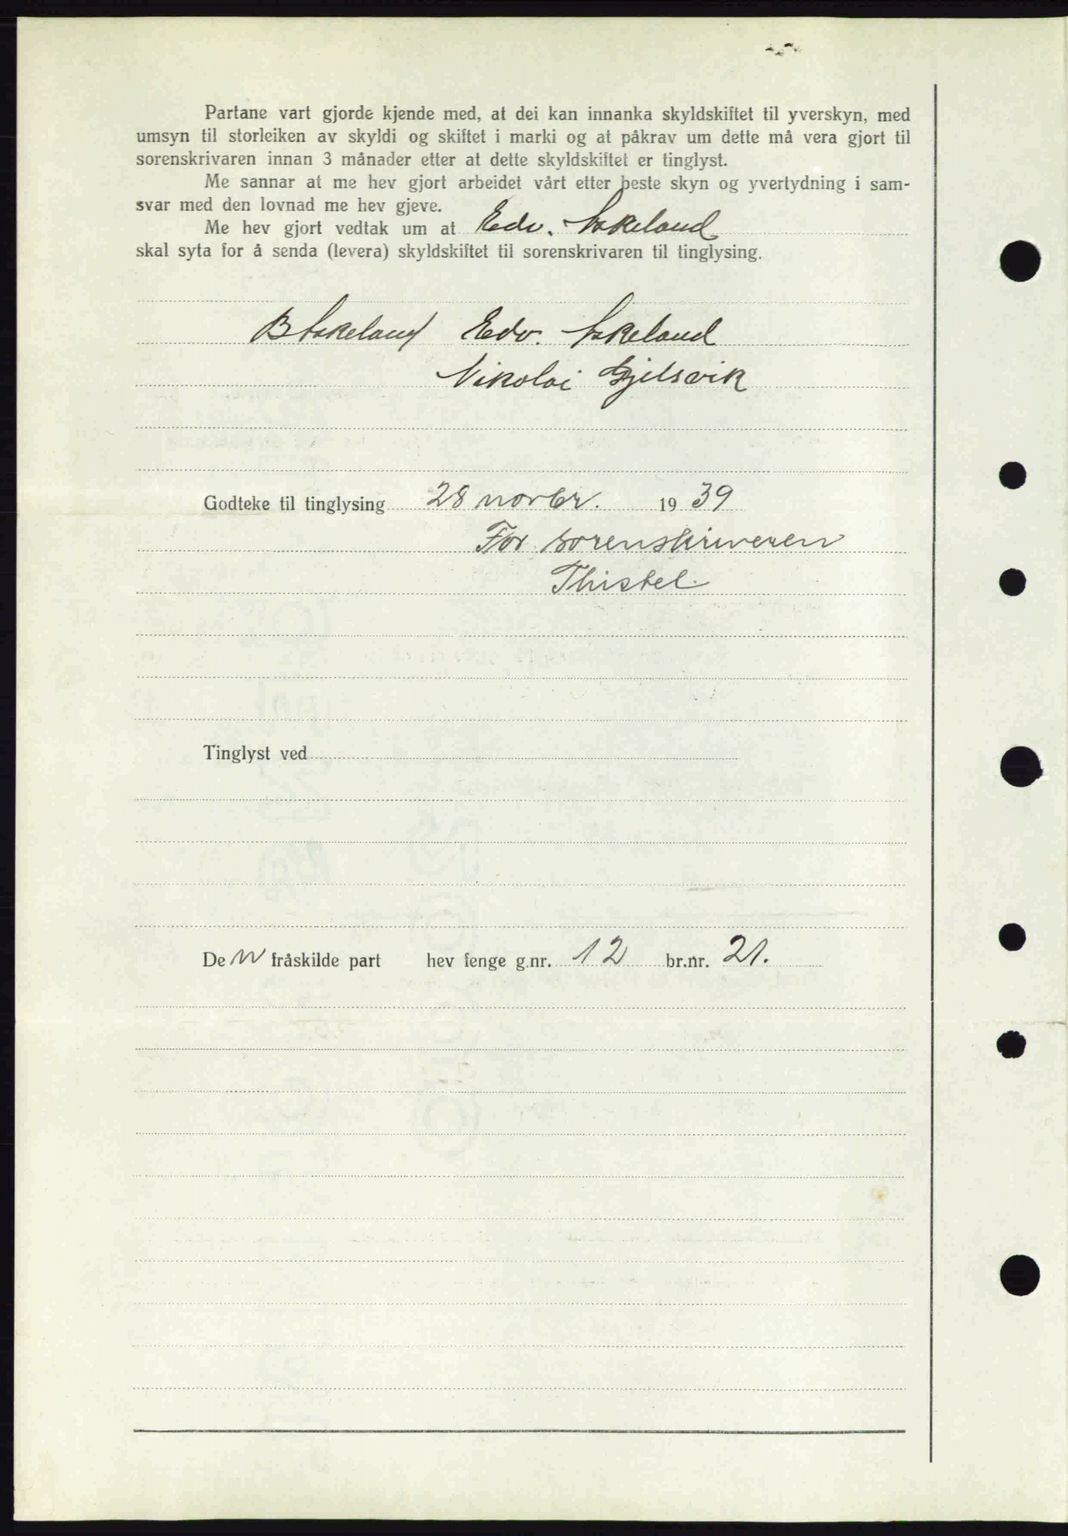 Partane vart gjorde kjende med, at dei kan innanka skyldskiftet til yverskyn, med
umsyn til storleiken av skyldi og skiftet i marki og at påkrav um dette må vera gjort til
sorenskrivaren innan 3 månader etter at dette skyldskiftet er tinglyst.
Me sannar at me hev gjort arbeidet vårt etter beste skyn og yvertydning i sam-
svar med den lovnad me hev gjeve.
Me hev gjort vedtak um at Edv. Askeland
skal syta for å senda (levera) skyldskiftet til sorenskrivaren til tinglysing.
B Askeland Edv. Askeland
Nikolai Gjelsvik
Godteke til tinglysing 28 novbr. 1939
For sorenskriveren
Thistel.
Tinglyst ved
De n fråskilde part hev fenge g.nr. 12 br.nr. 21.